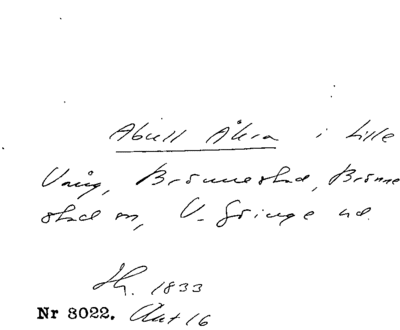 Abull Åkra i Lille
Vång, Brönnestad, Brönne
stad sn, V. Göinge hd.
Sk. 1833
Nr 8022. Akt 16